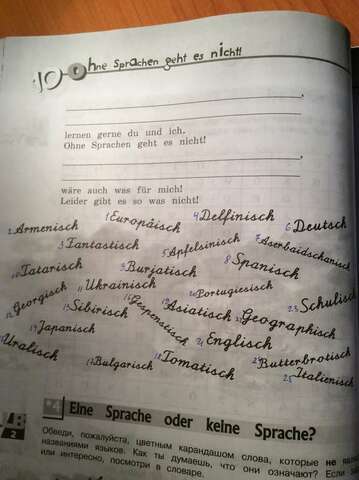 10 Ohne Sprachen geht es nicht!
lernen gerne du und ich.
Ohne Sprachen geht es nicht!
wäre auch was für mich!
Leider gibt es so was nicht!
1 Europäisch 4 Delfinisch 6 Deutsch
2 Armenisch
3 Fantastisch 5 Apfelsinisch 7 Aserbaidschanisch
10 Tatarisch 9 Burjatisch 8 Spanisch
11 Ukrainisch 20 Portugiesisch
Georgisch 13 Sibirisch Gespenstisch Asiatisch Geographisch 23 Schulisch
Japanisch 21 Englisch
Uralisch Bulgarisch 18 Tomatisch 24 Butterbrotisch
25 Italienisch
Eine Sprache oder keine Sprache?
AB
2
Обведи, пожалуйста, цветным карандашом слова, которые не
названиями языков. Как ты думаешь, что они означают? Если
или интересно, посмотри в словаре.